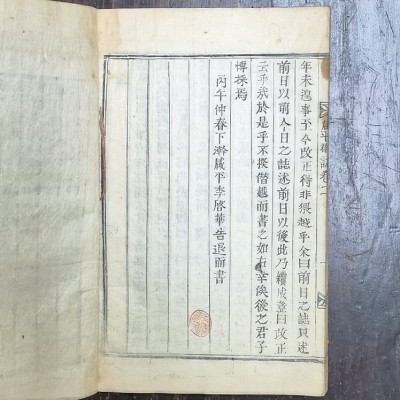 年未遑事至今改正待非猥越乎余曰前日之誌只述
前日以前今日之誌述前日以後此乃續成豈曰改正
云乎哉於是乎不揆僭越而書之如右幸俟後之君子
博採焉
丙午仲春下澣咸平李啓華告退而書
咸平
誌卷
一